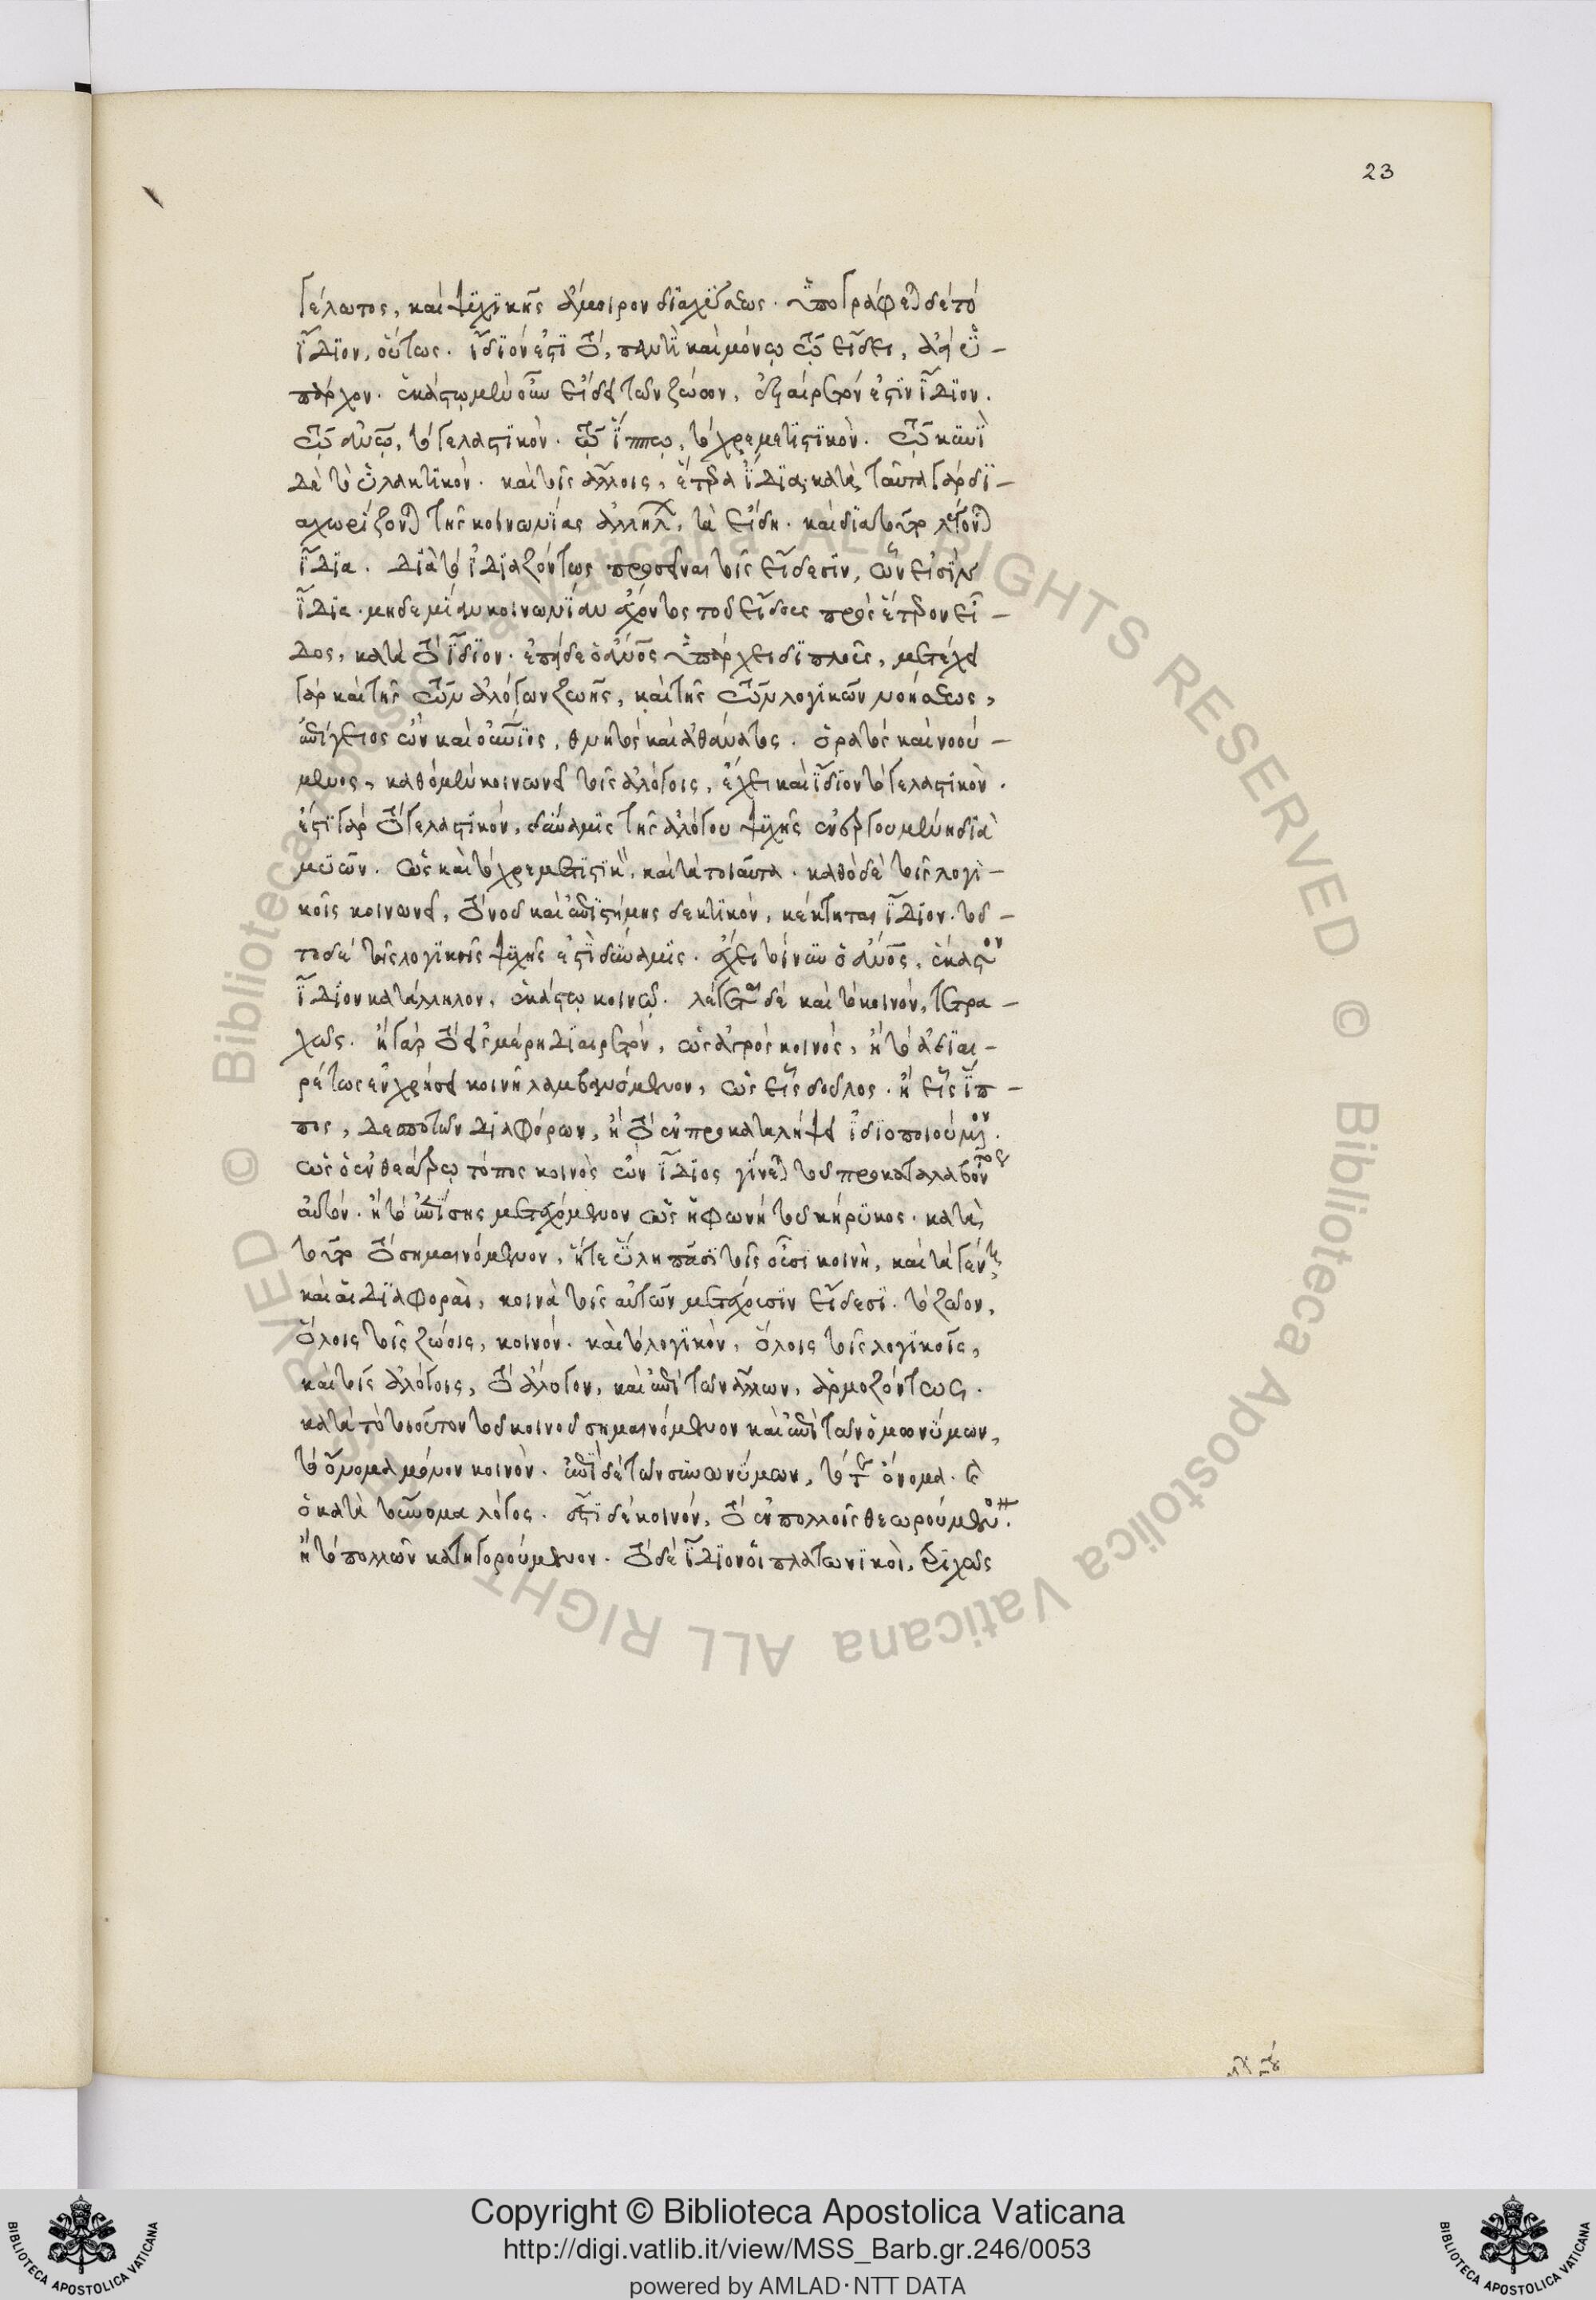 23
γέλωτος, καὶ ψυχικῆς ἄμοιρον διαλέξεως. ὑπογράφεται δὲ τὸ
ἴδιον, οὕτως. ἴδιόν ἐστι τὸ, παντὶ καὶ μόνῳ τῷ εἴδει, ἀεὶ ὑ-
πάρχον. ἑκάστῳ μὲν οὖν εἴδει τῶν ζώων, ἐξαίρετόν ἐστιν ἴδιον.
τῷ ἀνθρώπῳ, τὸ γελαστικόν. τῷ ἵππῳ, τὸ χρεμετιστικόν. τῷ κυνὶ
δὲ τὸ ὑλακτικόν. καὶ τοῖς ἄλλοις, ἕτερα ἴδια· κατὰ ταῦτα γὰρ δι-
αχωρίζονται τῆς κοινωνίας ἀλλήλων, τὰ εἴδη. καὶ διὰ τοῦτο λέγονται
ἴδια. διὰ τὸ ἰδιαζόντως προσεῖναι τοῖς εἴδεσιν, ὧν εἰσὶν
ἴδια. μηδεμίαν κοινωνίαν ἔχοντος τοῦ εἴδους πρὸς ἕτερον εἶ-
δος, κατὰ τὸ ἴδιον. ἐπεὶ δὲ ὁ ἄνθρωπος ὑπάρχει διπλοῦς, μετέχει
γὰρ καὶ τῆς τῶν ἀλόγων ζωῆς, καὶ τῆς τῶν λογικῶν νοήσεως,
ἐπίγειος ὢν καὶ οὐράνιος, θνητὸς καὶ ἀθάνατος. ὁρατὸς καὶ νοού-
μενος, καθὸ μὲν κοινωνεῖ τοῖς ἀλόγοις, ἔχει καὶ ἴδιον τὸ γελαστικόν.
ἐστὶ γὰρ τὸ γελαστικόν, δύναμις τῆς ἀλόγου ψυχῆς ἐνεργουμένη διὰ
μυῶν. ὡς καὶ τὸ χρεμετιστικὸν, καὶ τὰ τοιαῦτα. καθὸ δὲ τοῖς λογι-
κοῖς κοινωνεῖ, τὸ νοῦ καὶ ἐπιστήμης δεκτικόν, κέκτηται ἴδιον. τοῦ-
το δὲ τῆς λογικῆς ψυχῆς ἐστὶ δύναμις. ἔχει τοίνυν ὁ ἄνθρωπος, ἑκάστου
ἴδιον κατάλληλον, ἑκάστῳ κοινῷ. λέγεται δὲ καὶ τὸ κοινόν, τετρα-
χῶς. ἢ γὰρ τὸ εἰς μέρη διαιρετόν, ὡς ἀγρὸς κοινός, ἢ τὸ ἀδιαι-
ρέτως ἐν χρήσει κοινῇ λαμβανόμενον, ὡς εἷς δοῦλος. ἢ εἷς ἵπ-
πος, δεσποτῶν διαφόρων, ἢ τὸ ἐν προκαταλήψει ἰδιοποιούμενον.
ὡς ὁ ἐν θεάτρῳ τόπος κοινὸς ὢν ἴδιος γίνεται τοῦ προκαταλαβόντος
αὐτόν. ἢ τὸ ἐπίσης μετεχόμενον ὡς ἡ φωνὴ τοῦ κήρυκος. κατὰ
τοῦτο τὸ σημαινόμενον, ἥτε ὕλη πᾶσι τοῖς οὖσι κοινὴ, καὶ τὰ γένη
καὶ αἱ διαφοραὶ, κοινὰ τοῖς αὐτῶν μετέχουσιν εἴδεσι. τὸ ζῶον,
ὅλοις τοῖς ζώοις, κοινόν. καὶ τὸ λογικόν, ὅλοις τοῖς λογικοῖς,
καὶ τοῖς ἀλόγοις, τὸ ἄλογον, καὶ ἐπὶ τῶν ἄλλων, ἁρμοζόντως.
κατὰ τὸ τοιοῦτον τοῦ κοινοῦ σημαινόμενον καὶ ἐπὶ τῶν ὁμωνύμων,
τὸ ὄνομα μόνον κοινόν. ἐπὶ δὲ τῶν συνωνύμων, τό τε ὄνομα. καὶ
ὁ κατὰ τοὔνομα λόγος. ἔστι δὲ κοινόν, τὸ ἐν πολλοῖς θεωρούμενον.
ἢ τὸ πολλῶν κατηγορούμενον. τὸ δὲ ἴδιον οἱ πλατωνικοὶ, τριχῶς
Copyright © Biblioteca Apostolica Vaticana
http://digi.vatlib.it/view/MSS_Barb.gr.246/0053
powered by AMLAD·NTT DATA